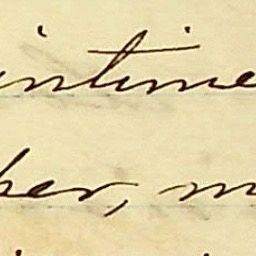 intime
ber, m